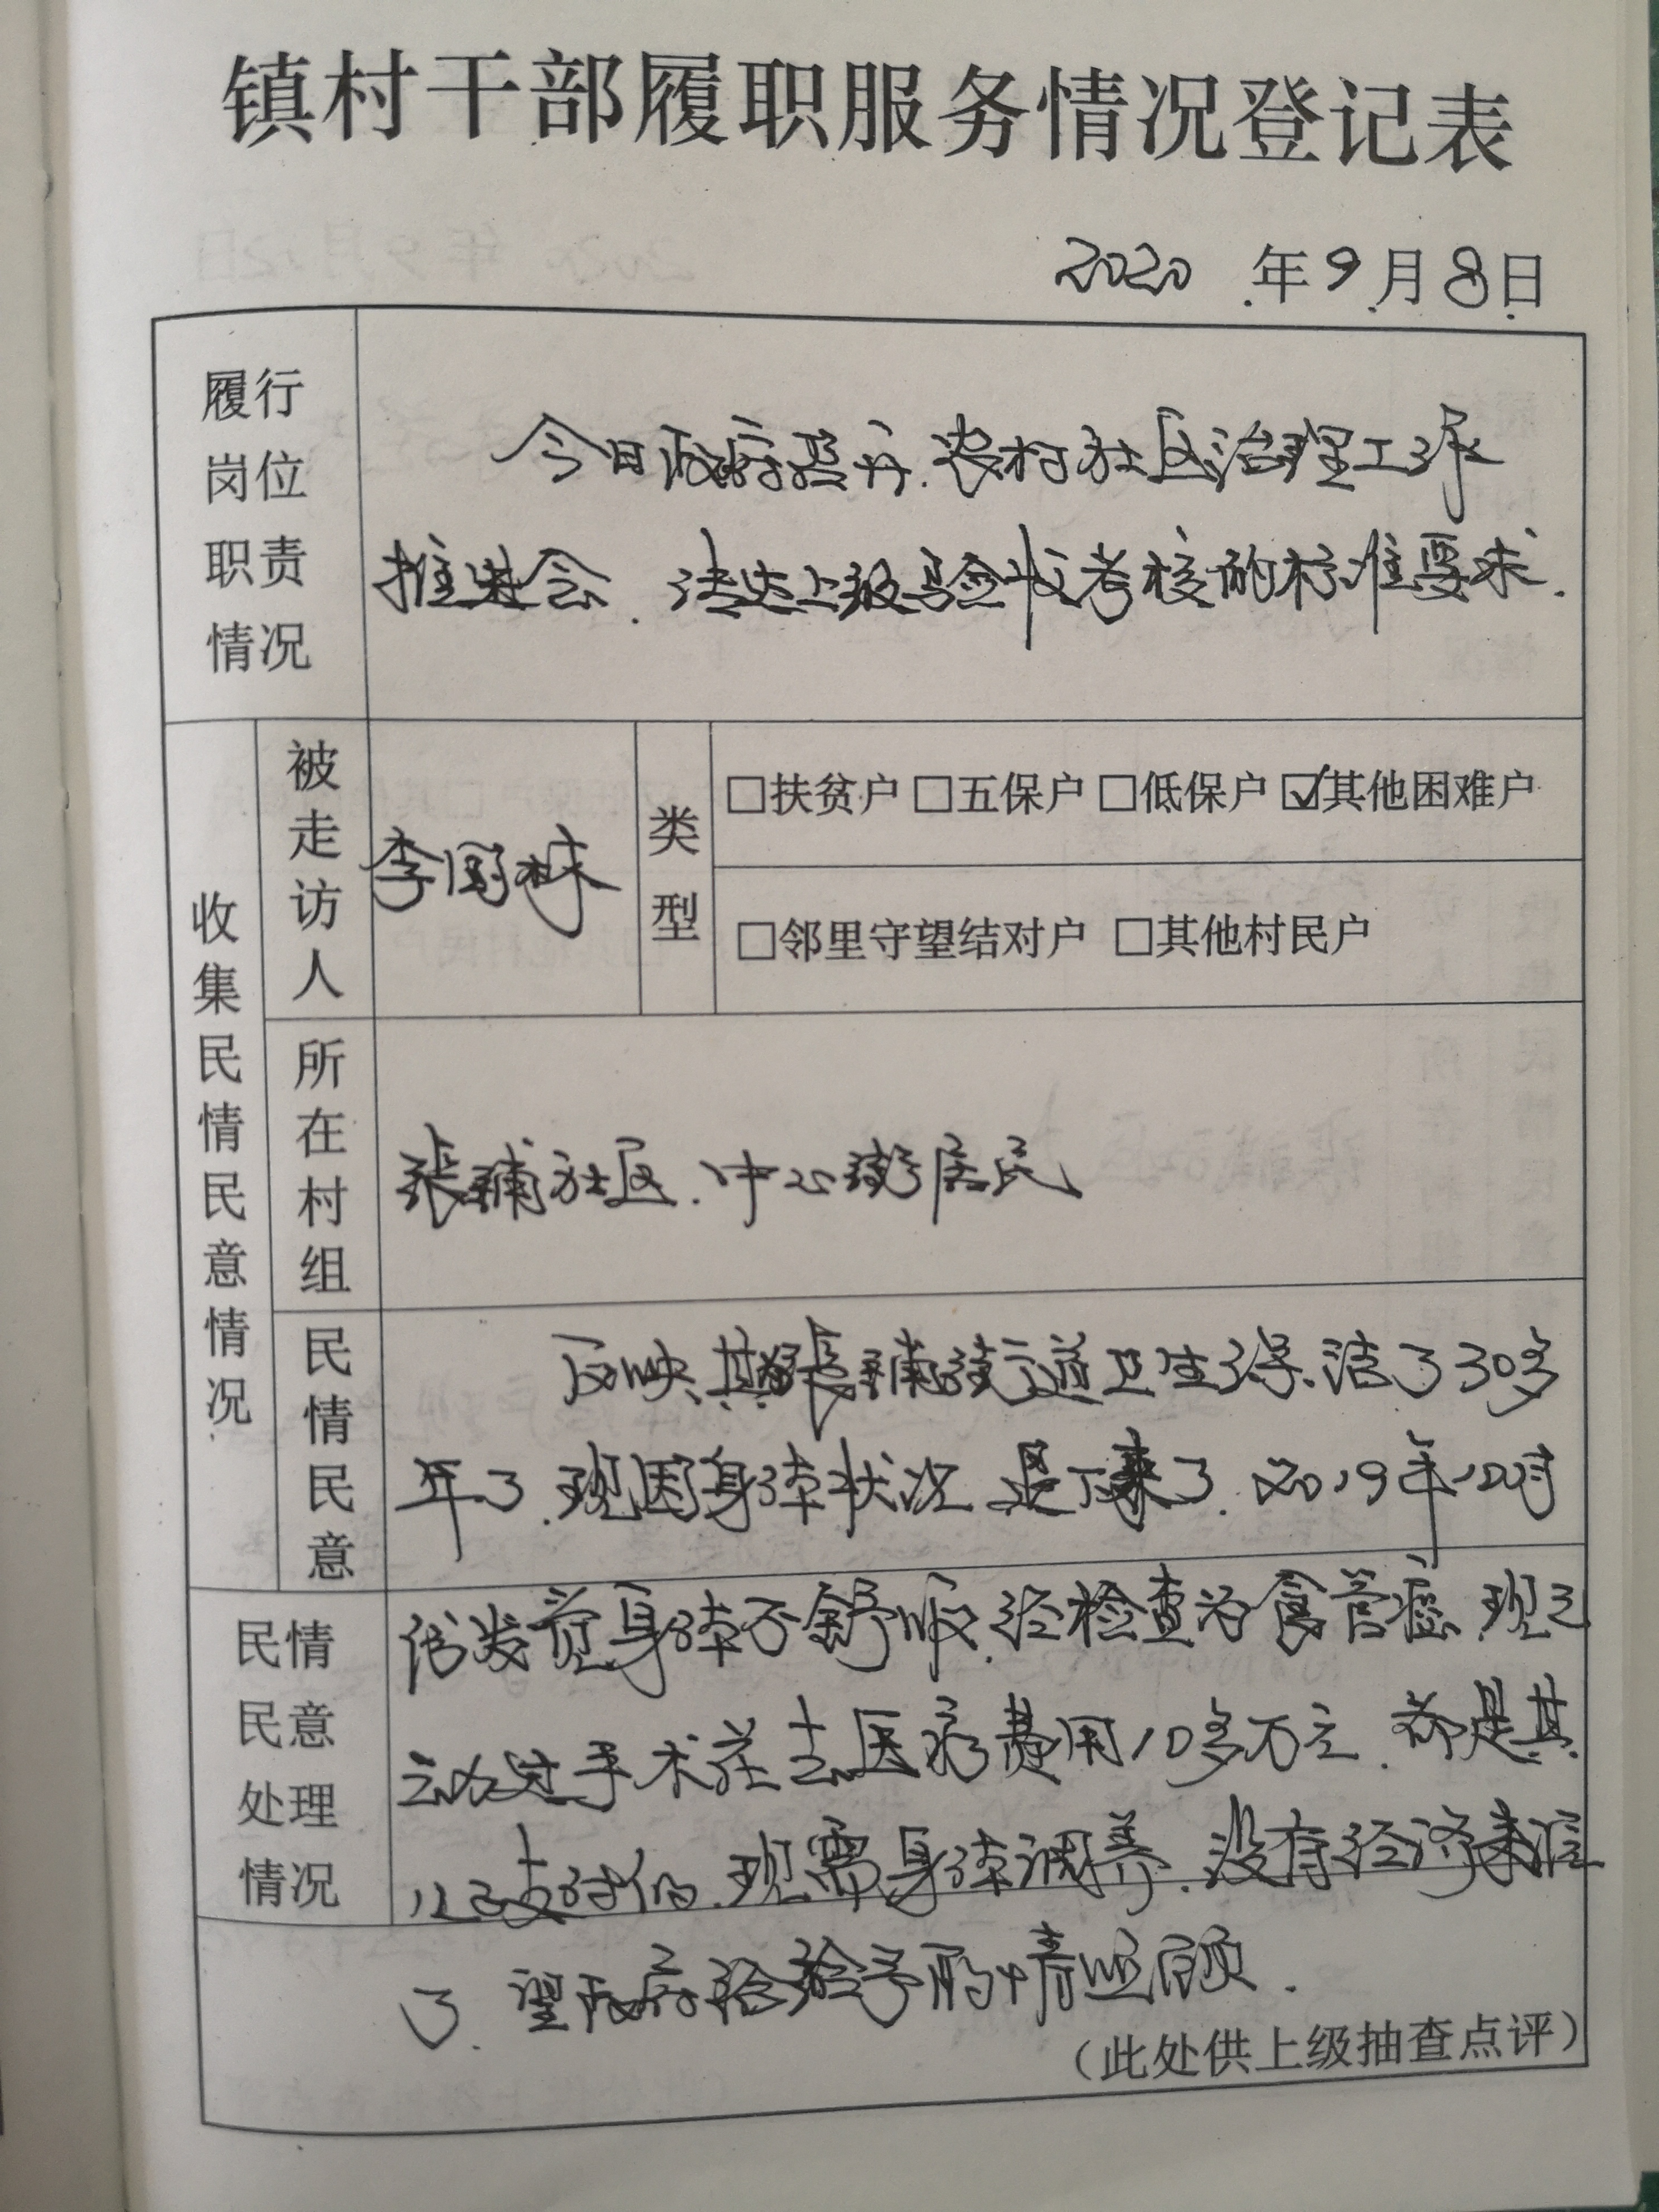 镇村干部履职服务情况登记表
2020 年 9 月 8 日
履行
岗位
职责
情况
今日政府召开.农村社区治理工作
推进会.传达上级验收考核的标准要求.
收集民情民意情况
被走访人
李国林
类型
□扶贫户 □五保户 □低保户 ☑其他困难户
□邻里守望结对户 □其他村民户
所在村组
张铺社区.中心街居民
民情民意
反映其张铺街道卫生保洁了30多
年了.现因身体状况退下来了.2019年10时
民情
民意
处理
情况
候发觉身体不舒服.经检查为食管癌 现已
动过手术花去医疗费用10多万元.都是其
儿子支付的.现需身体调养.没有经济来源
了.望政府给给予酌情照顾.
（此处供上级抽查点评）